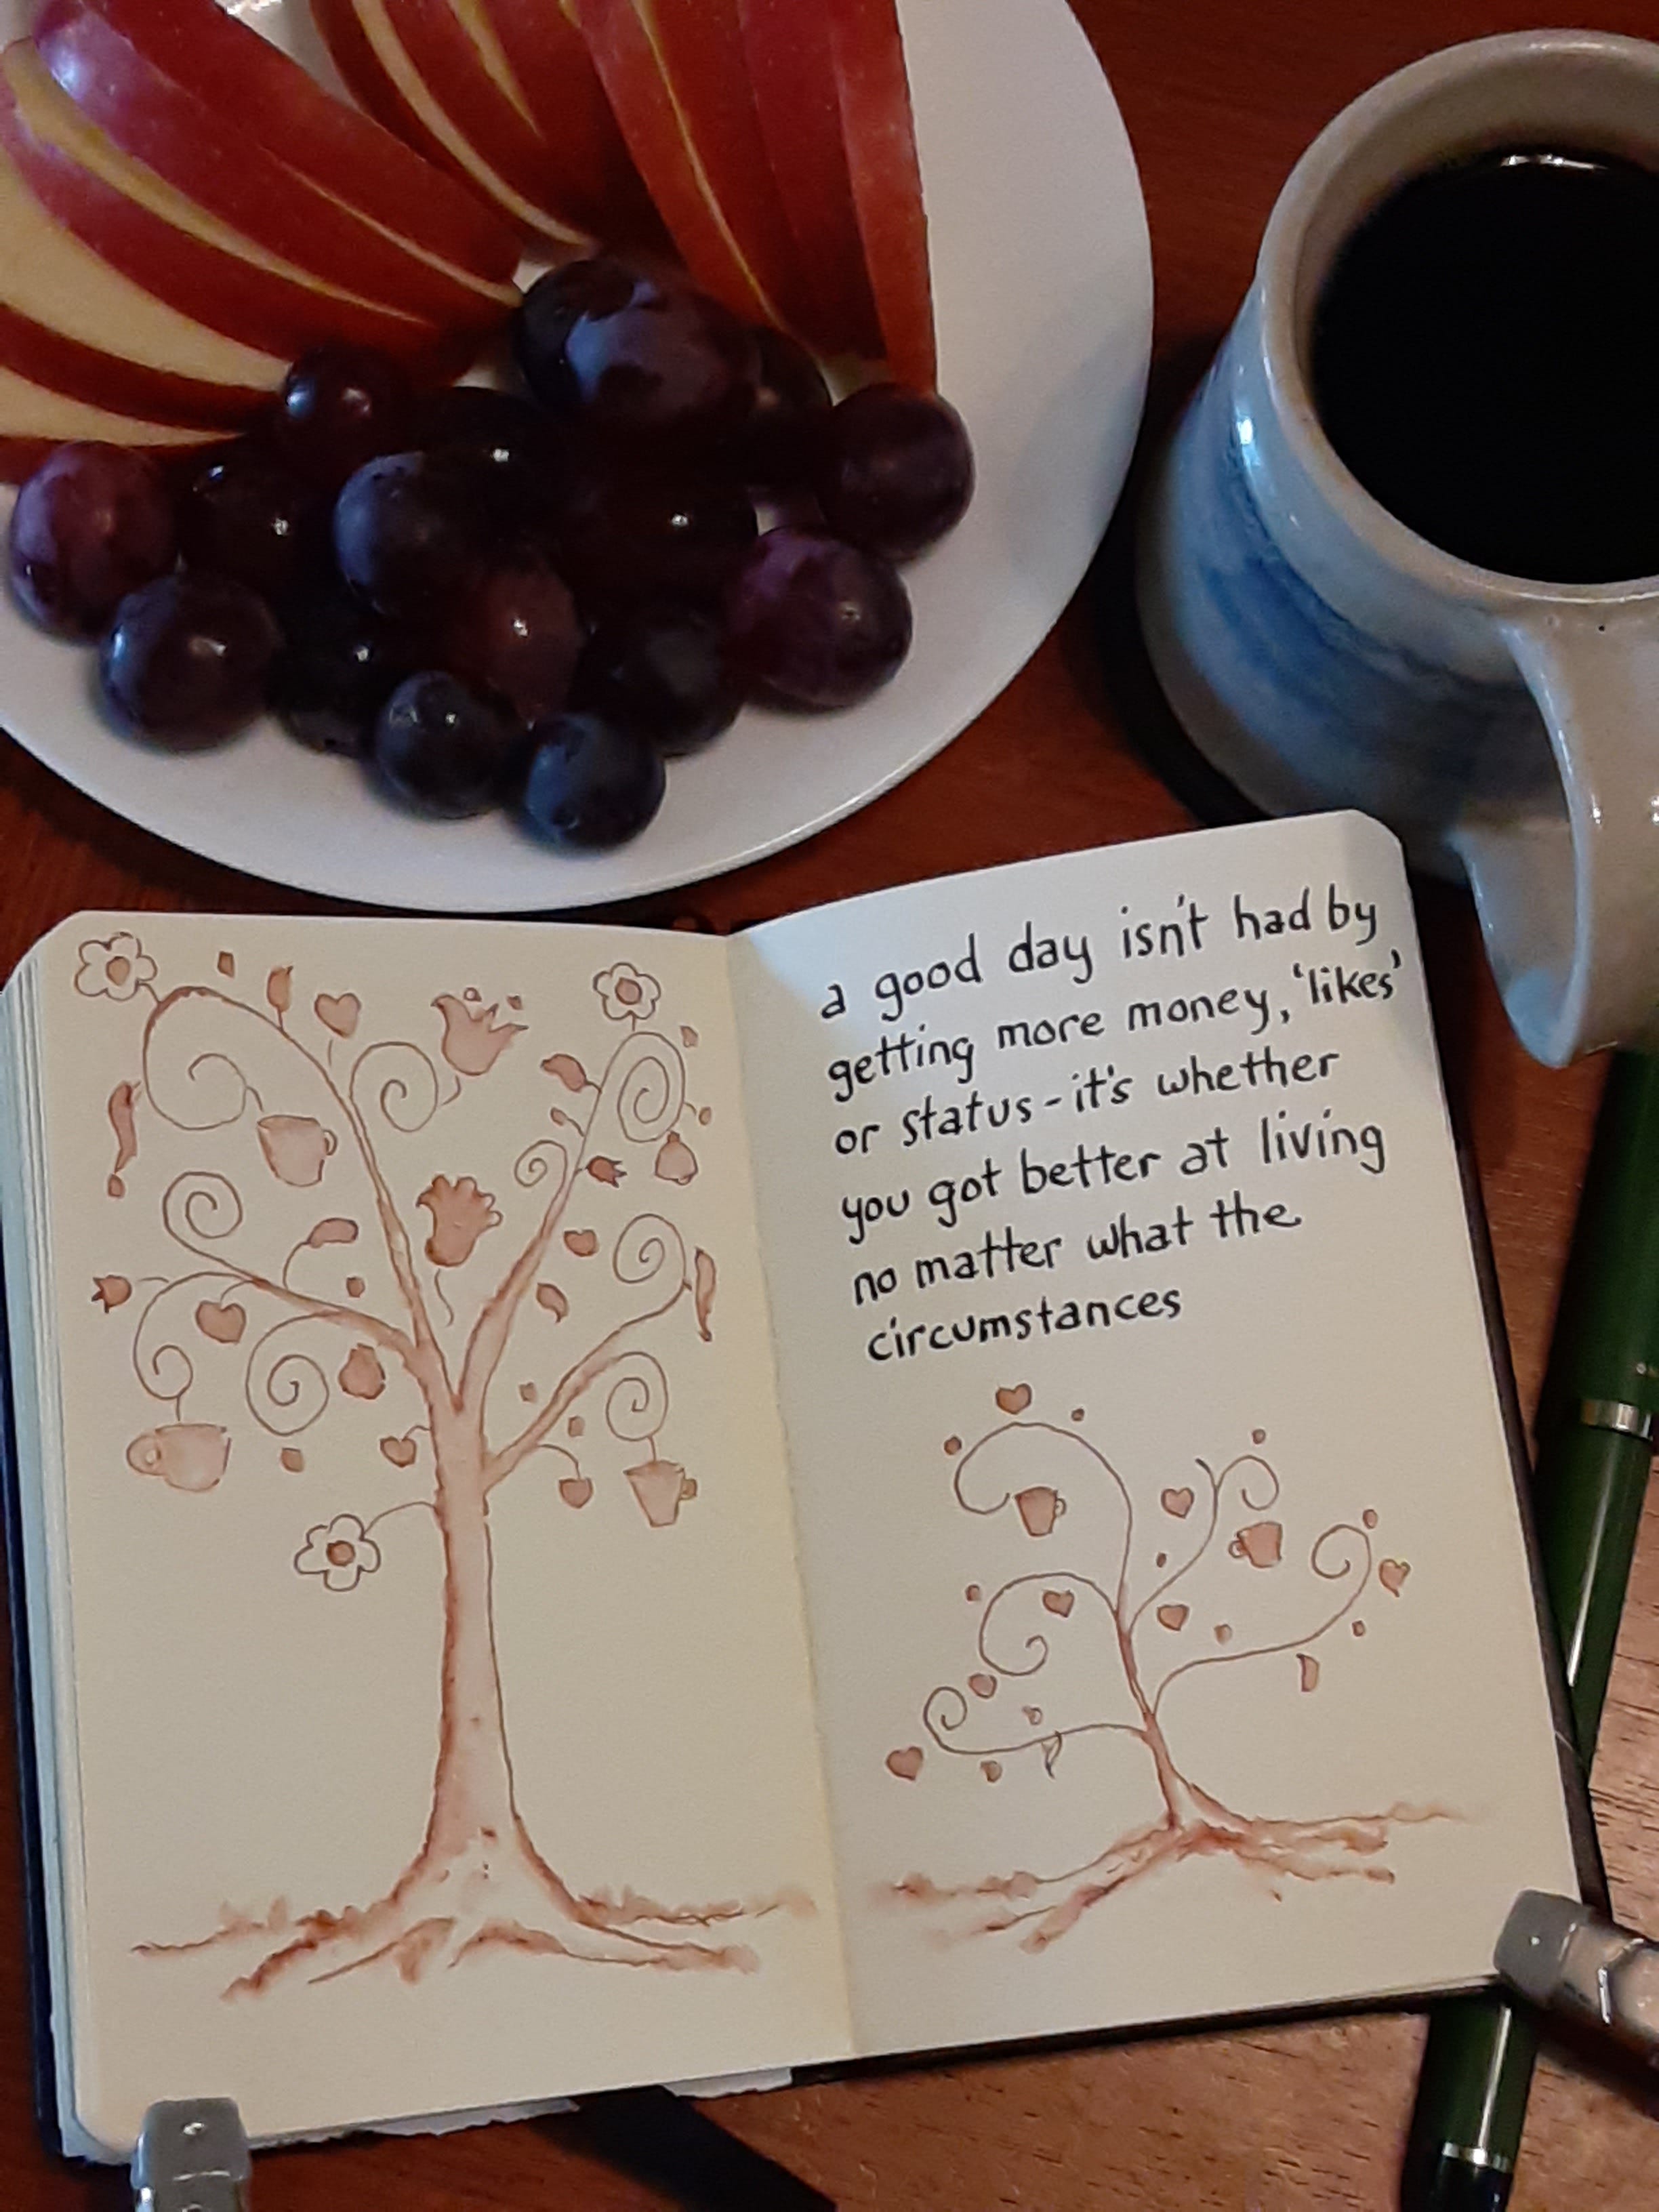 a good day isn't had by
getting more money, 'likes'
or status - it's whether
you got better at living
no matter what the
circumstances